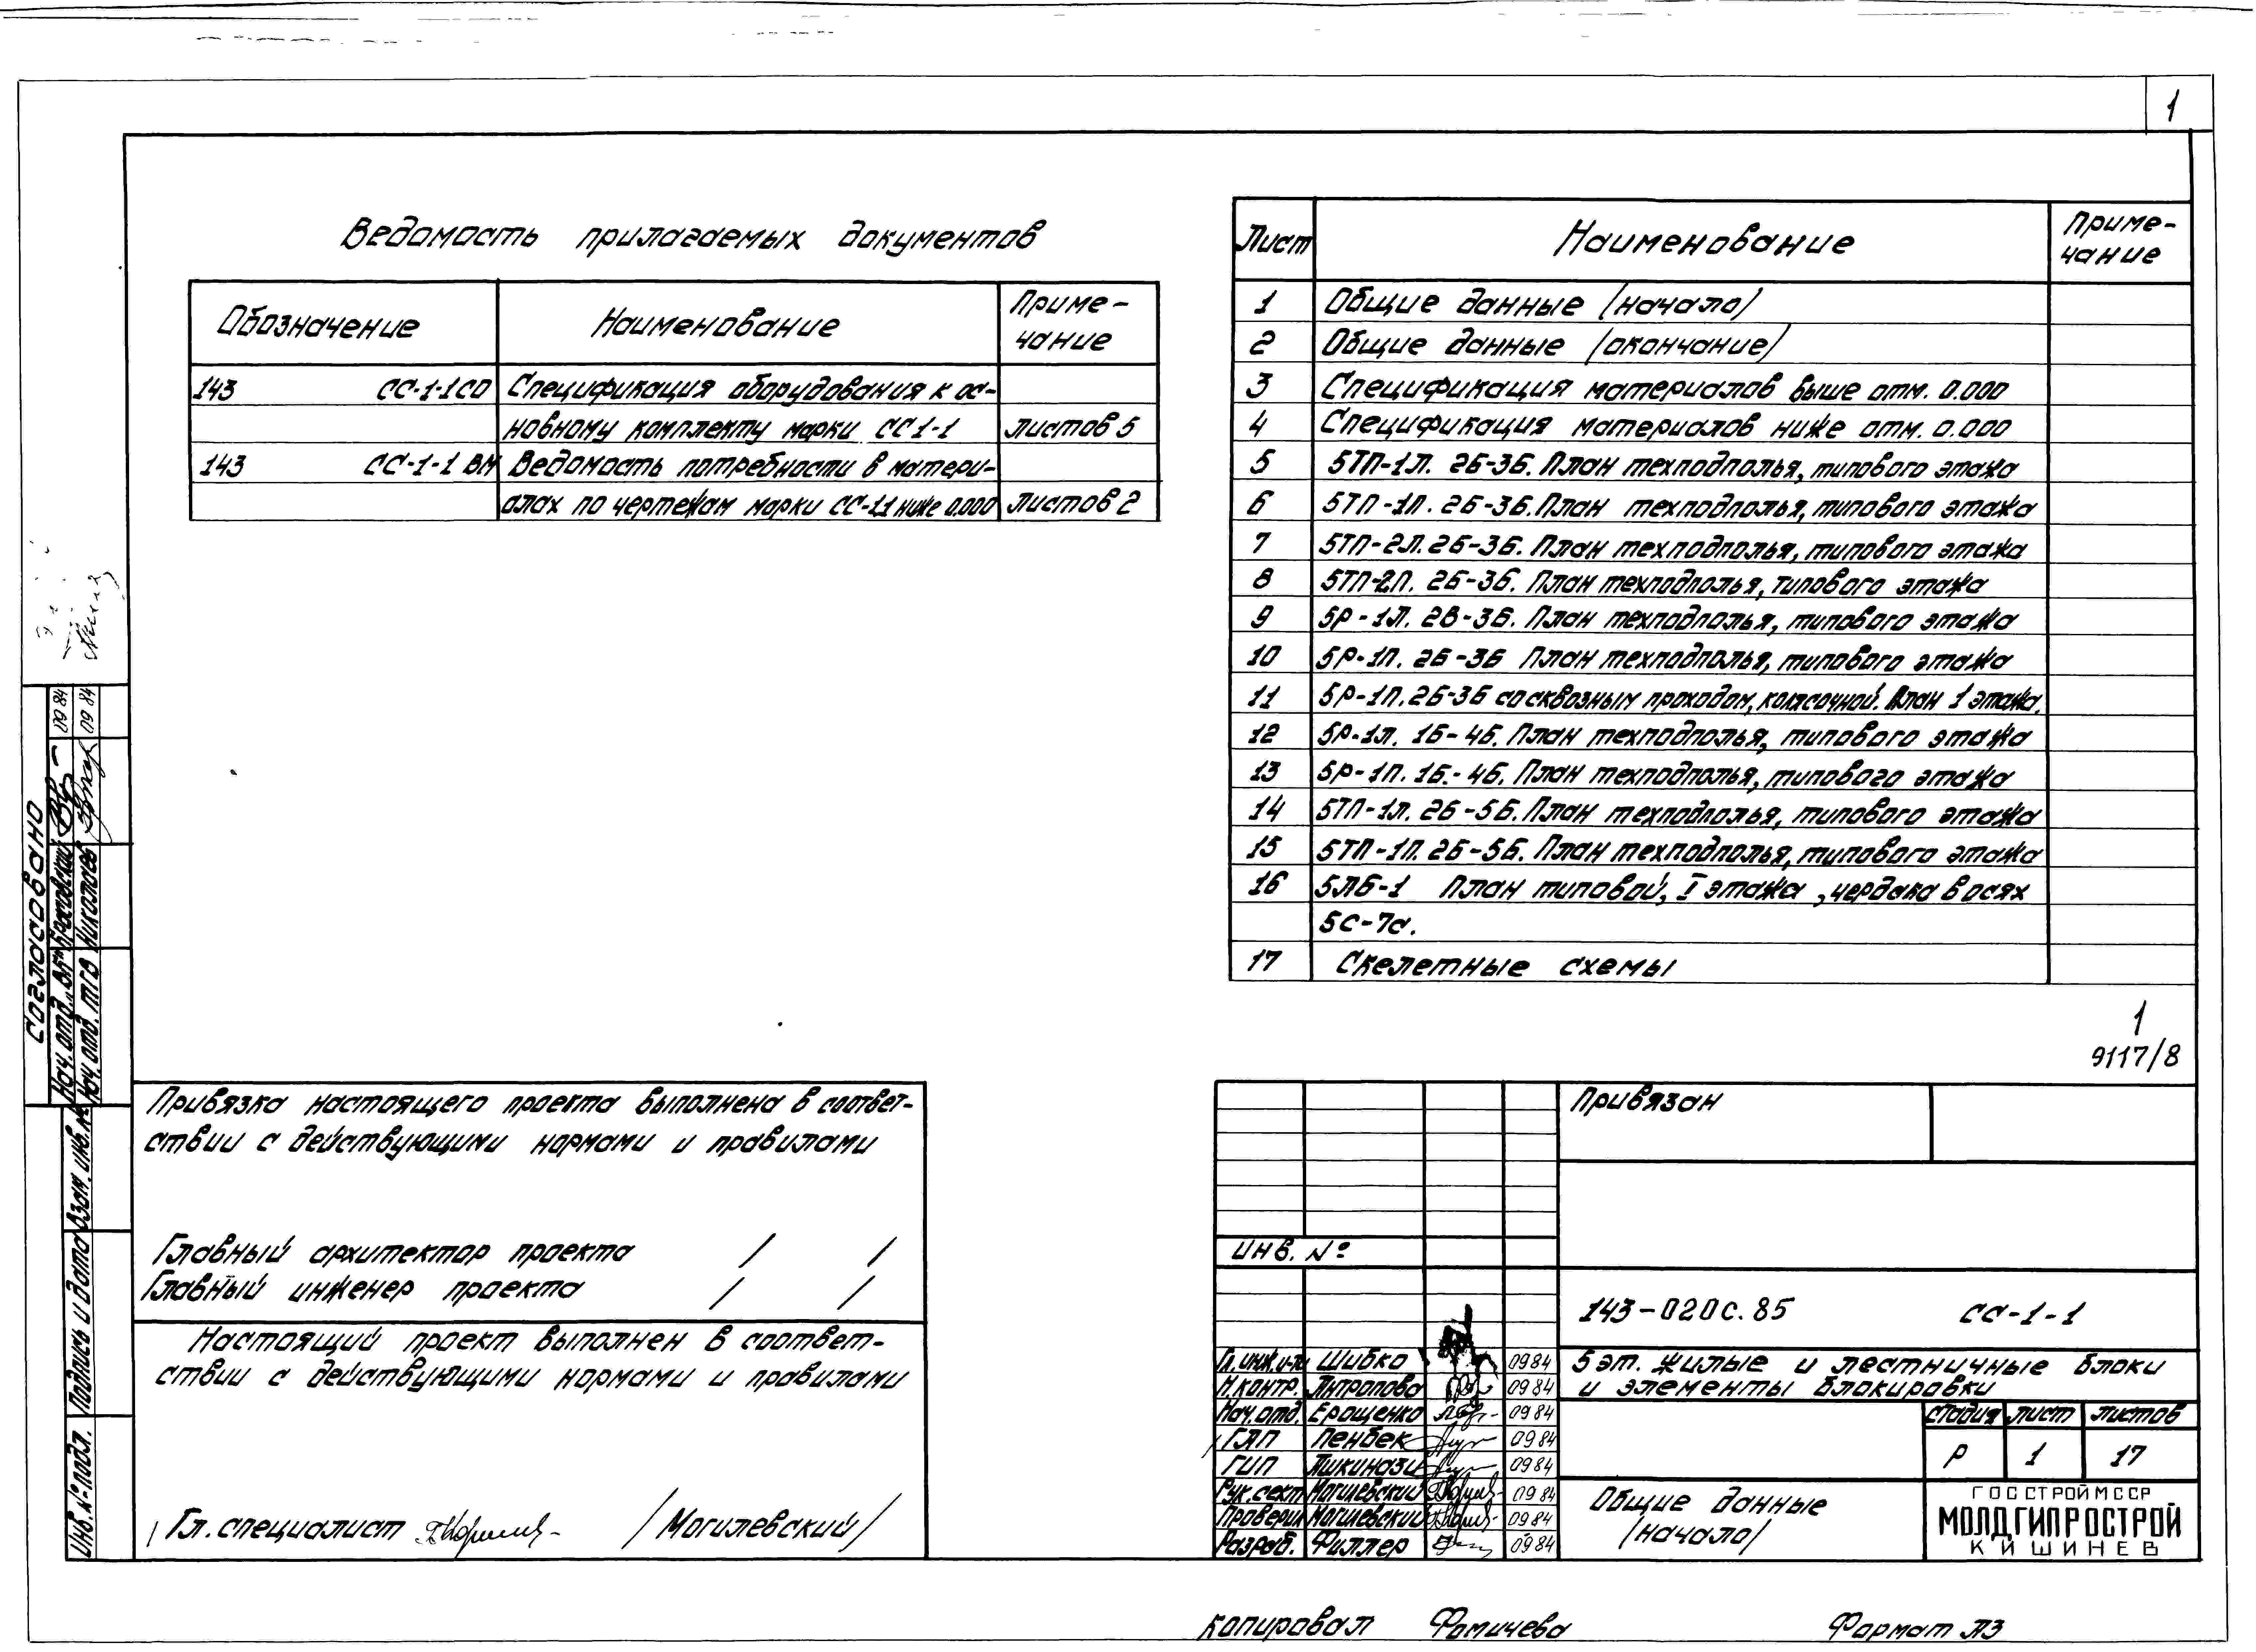 1
Ведомость прилагаемых документов
Обозначение Наименование Приме-
чание
143 СС-1-1СО Спецификация оборудования к ос-
новному комплекту марки СС1-1 листов 5
143 СС-1-1 ВМ Ведомость потребности в матери-
алах по чертежам марки СС-1.1 ниже 0.000 листов 2
Лист Наименование Приме-
чание
1 Общие данные /начало/
2 Общие данные /окончание/
3 Спецификация материалов выше отм. 0.000
4 Спецификация материалов ниже отм. 0.000
5 5ТП-1Л. 2Б-3Б. План техподполья, типового этажа
6 5ТП-1П. 2Б-3Б. План техподполья, типового этажа
7 5ТП-2Л. 2Б-3Б. План техподполья, типового этажа
8 5ТП-2П. 2Б-3Б. План техподполья, типового этажа
9 5Р-1Л. 2В-3Б. План техподполья, типового этажа
10 5Р-1П. 2Б-3Б План техподполья, типового этажа
11 5Р-1П. 2Б-3Б со сквозным проходом, колясочной. План 1 этажа.
12 5Р-1Л. 1Б-4Б. План техподполья, типового этажа
13 5Р-1П. 1Б.-4Б. План техподполья, типового этажа
14 5ТП-1Л. 2Б-5Б. План техподполья, типового этажа
15 5ТП-1П. 2Б-5Б. План техподполья, типового этажа
16 5ЛБ-1 План типовой, I этажа, чердака в осях
5С-7С.
17 Скелетные схемы
1
9117/8
Согласовано
Нач. отд. "ВГ" Бросовский 09 84
Нач. отд. ТГВ Николаев 09 84
Взам. инв. №
Подпись и дата
Инв. № подл.
Привязка настоящего проекта выполнена в соответ-
ствии с действующими нормами и правилами
Главный архитектор проекта / /
Главный инженер проекта / /
Настоящий проект выполнен в соответ-
ствии с действующими нормами и правилами
Гл. специалист /Могилевский/
Привязан
Инв. №
143-020С.85 СС-1-1
Гл. инж. и-та Шибко 09 84
Н. контр. Антропова 09 84
Нач. отд. Ерощенко 09 84
ГАП Ленбек 09 84
ГИП Ашкинази 09 84
Рук. сект Могилевский 09 84
Проверил Могилевский 09 84
Разраб. Филлер 09 84
5 эт. жилые и лестничные блоки
и элементы блокировки
стадия лист листов
Р 1 17
Общие данные
/начало/
ГОССТРОЙ МССР
МОЛДГИПРОСТРОЙ
КИШИНЕВ
Копировал Фомичева Формат А3